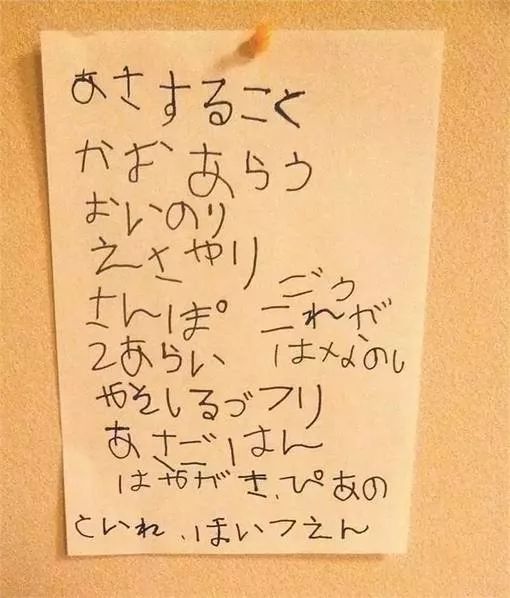 あさすること
かお あらう
おいのり
えさやり
さんぽ
2あらい
やそしるづフリ
あさごはん
はやがき、ぴあの
といれ、ほいつえん
ごう
これが
はなのし